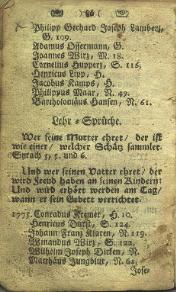 86
Philipp Gerhard Joseph Lambert,
G. 109.
Adamus Offermann, G.
Joannes Wirtz, M. 18.
Cornelius Huppertz, S. 116.
Henricus Lipp, H.
Jacobus Kamps, H.
Philippus Maur, N. 49.
Bartholomäus Hansen, N. 61.
Lehr-Sprüche.
Wer seine Mutter ehret / der ist
wie einer / welcher Schätz sammlet.
Syrach 3, 5. und 6.
Und wer seinen Vatter ehret / der
wird Freud haben an seinen Kindern:
Und wird erhört werden am Tag /
wann er sein Gebett verrichtet.
1775. Conradus Kremer, H. 10.
Henricus Durst, S. 124.
Johann Frantz Klaren, N. 119.
Winandus Wirtz, S. 122.
Wilhelm Joseph Dircken, N.
Matthäus Jungblut, N. 62.
Jose-